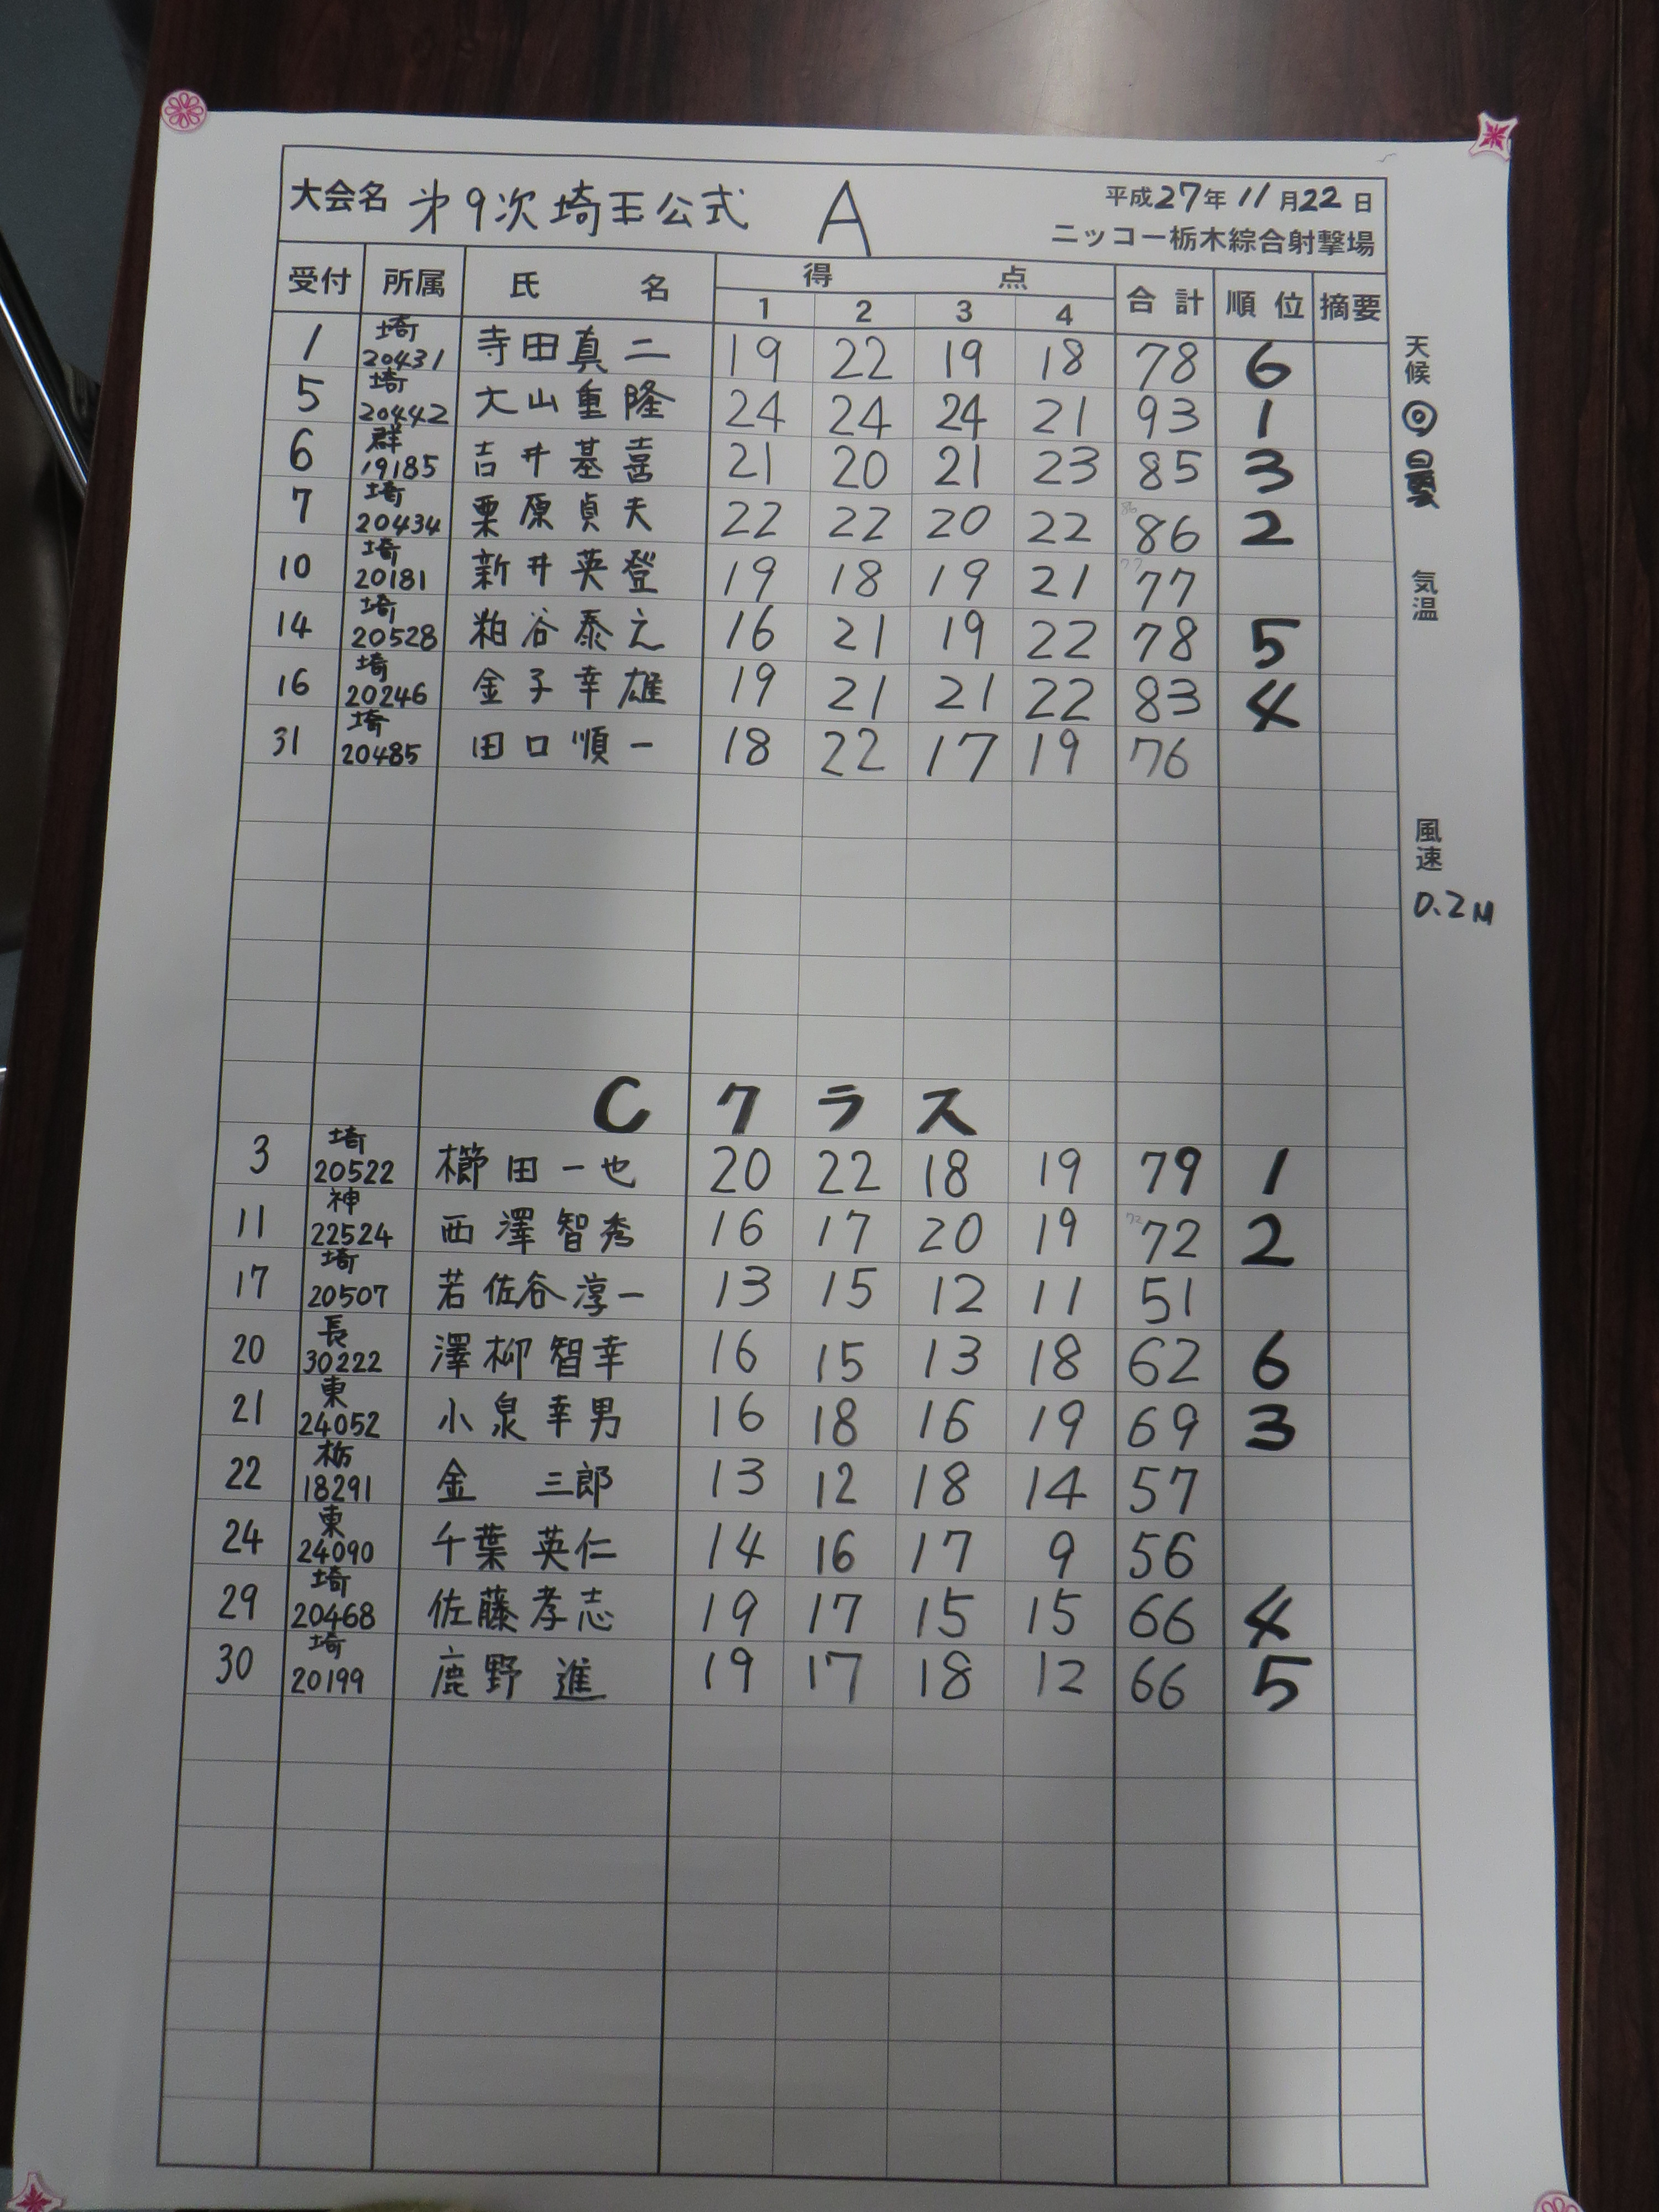 大会名 オ9次埼玉公式 A 平成27年11月22日
ニッコー栃木綜合射撃場
受付 所属 氏名 得点 合計 順位 摘要
1 2 3 4
1 埼20431 寺田真二 19 22 19 18 78 6
5 埼20442 大山重隆 24 24 24 21 93 1
6 群19185 吉井基喜 21 20 21 23 85 3
7 埼20434 栗原貞夫 22 22 20 22 86 2
10 埼20181 新井英登 19 18 19 21 77
14 埼20528 粕谷泰之 16 21 19 22 78 5
16 埼20246 金子幸雄 19 21 21 22 83 4
31 埼20485 田口順一 18 22 17 19 76
Cクラス
3 埼20522 櫛田一也 20 22 18 19 79 1
11 神22524 西澤智秀 16 17 20 19 72 2
17 埼20507 若佐谷淳一 13 15 12 11 51
20 長30222 澤柳智幸 16 15 13 18 62 6
21 東24052 小泉幸男 16 18 16 19 69 3
22 栃18291 金 三郎 13 12 18 14 57
24 東24090 千葉英仁 14 16 17 9 56
29 埼20468 佐藤孝志 19 17 15 15 66 4
30 埼20199 鹿野進 19 17 18 12 66 5
天候 ◎
気温
風速
0.2M